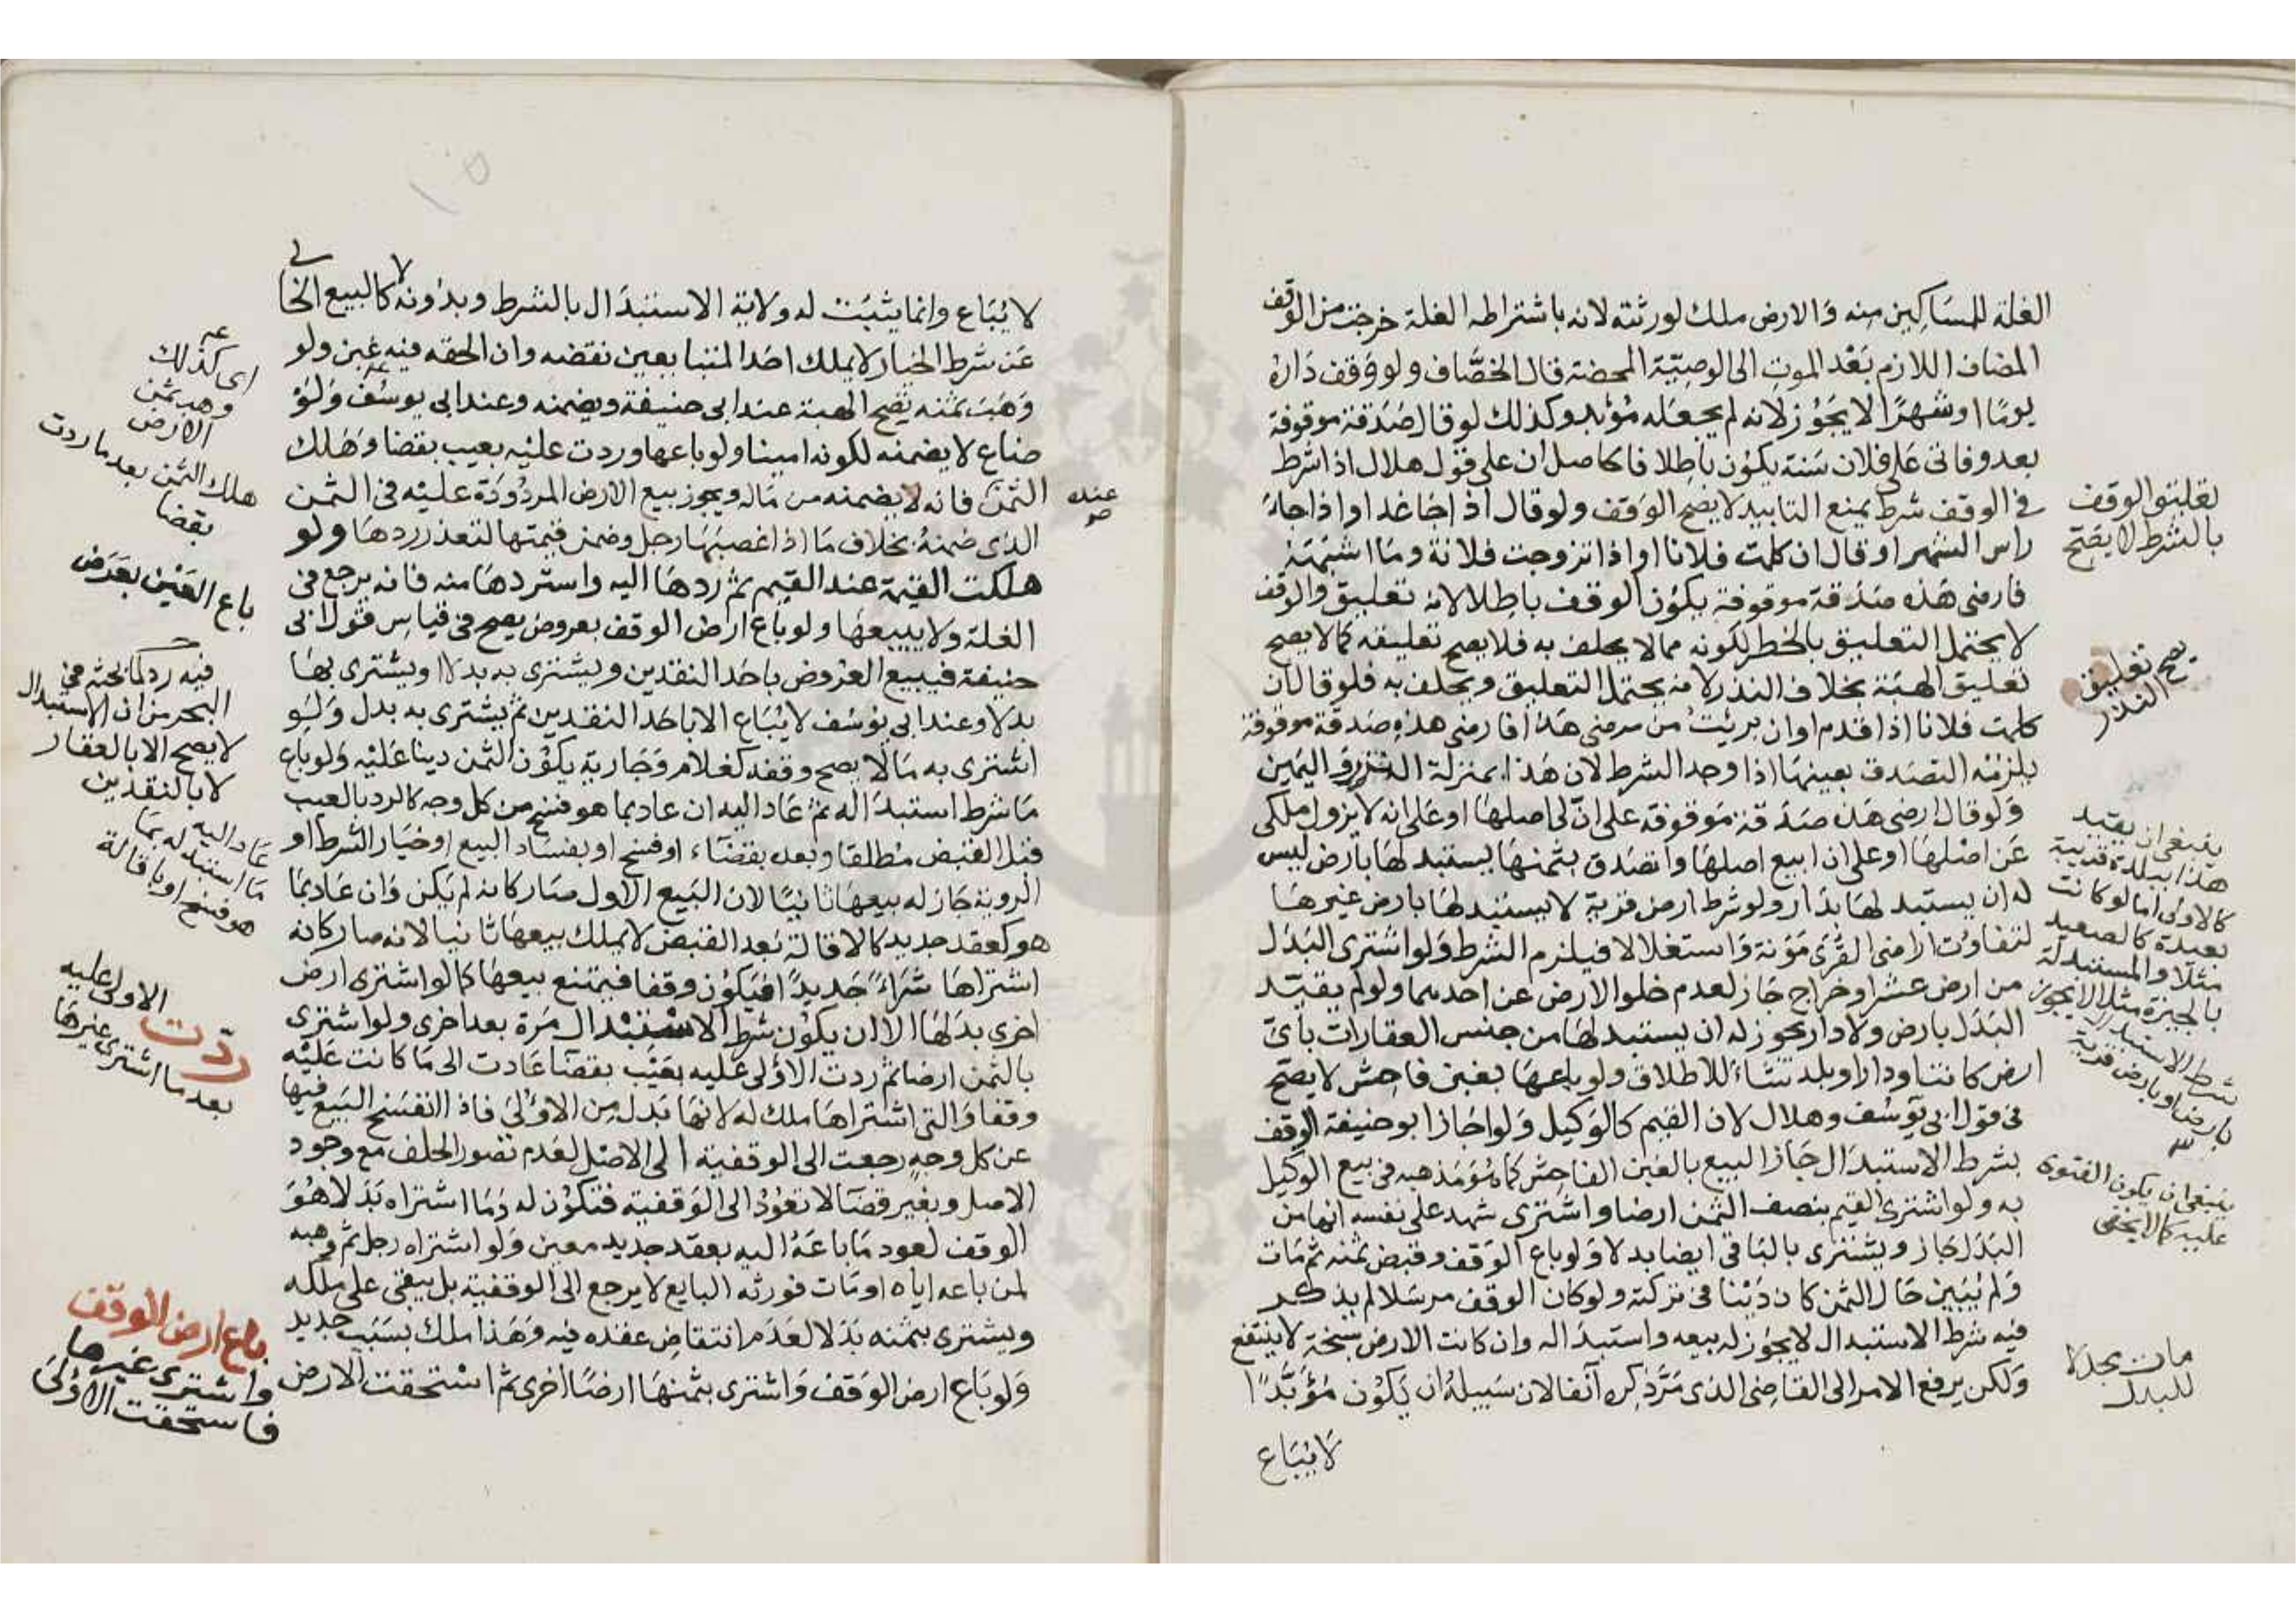 الغلة للمساكين منه والارض ملك لورثته لانه باشتراطه الغلة خرجت من الوقف
المضاف اللازم بعد الموت الى الوصية المحضة قال الخصاف ولو وقف داره
يوما او شهرا لا يجوز لانه لم يجعله مؤبد وكذلك لو قال صدقة موقوفة
بعد وفاتى على فلان سنة يكون باطلا فالحاصل ان على قول هلال اذا شرط
فى الوقف شرط يمنع التابيد لا يصح الوقف ولو قال اذا جاء غد او اذا جاء
راس الشهر او قال ان كلمت فلانا او اذا تزوجت فلانة وما اشبهه
فارضى هذه صدقة موقوفة يكون الوقف باطلا لانه تعليق والوقف
لا يحتمل التعليق بالخطر لكونه مما لا يحلف به فلا يصح تعليقه كما لا يصح
تعليق الهبة بخلاف النذر لانه يحتمل التعليق ويحلف به فلو قال ان
كلمت فلانا اذا قدم او ان برئت من مرضى هذا فارضى هذه صدقة موقوفة
يلزمه التصدق بعينها اذا وجد الشرط لان هذا بمنزلة النذر واليمين
ولو قال ارضى هذه صدقة موقوفة على ان لى اصلها او على انه لا يزول ملكى
عن اصلها او على ان ابيع اصلها واتصدق بثمنها يستبدلها بارض ليس
له ان يستبدلها بدار ولو شرط ارض قرية لا يستبدلها بارض غيرها
لتفاوت اراضى القرى مؤنة واستغلالا فيلزم الشرط ولو اشترى البدل
من ارض عشر او خراج جاز لعدم خلو الارض عن احدهما ولو لم يقيد
البدل بارض ولا دار يجوز له ان يستبدلها من جنس العقارات باى
ارض كانت او دارا وبلد تشاء للاطلاق ولو باعها بغبن فاحش لا يصح
فى قول ابى يوسف وهلال لان القيم كالوكيل ولو اجاز ابو حنيفة الوقف
بشرط الاستبدال جاز البيع بالغبن الفاحش كما هو مذهبه فى بيع الوكيل
به ولو اشترى القيم بنصف الثمن ارضا واشترى شهد على نفسه انها من
البدل جاز ويشترى بالباقى ايضا بدلا ولو باع الوقف وقبض ثمنه ثم مات
ولم يبين حال الثمن كان دينا فى تركته ولو كان الوقف مرسلا لم يذكر
فيه شرط الاستبدال لا يجوز له بيعه واستبداله وان كانت الارض سبخة لا ينتفع
ولكن يرفع الامر الى القاضى الذى مر ذكره آنفا لان سبيله ان يكون مؤبدا
لا يباع
تعليق الوقف
بالشرط لا يصح
يصح تعليق
النذر
ينبغى ان يقيد
هذا ببلدة قريبة
كالاولى اما لو كانت
بعيدة كالصعيد
مثلا والمستبدلة
بالجيزة مثلا لا يجوز
شرط الاستبدال
بارض او بارض قرية
ينبغى ان يكون الفتوى
عليه كما لا يخفى
مات مجهلا
للبدل
لا يباع وانما يثبت له ولاية الاستبدال بالشرط وبدونه لا كالبيع الخالى
عن شرط الخيار لا يملك احد المتبايعين نقضه وان لحقه فيه غبن ولو
وهب ثمنه يصح الهبة عند ابى حنيفة ويضمنه وعند ابى يوسف ولو
ضاع لا يضمنه لكونه امينا ولو باعها وردت عليه بعيب بقضا وهلك
الثمن فانه لا يضمنه من ماله ويجوز بيع الارض المردودة عليه فى الثمن
الذى ضمنه بخلاف ما اذا غصبها رجل وضمن قيمتها لتعذر ردها ولو
هلكت القيمة عند القيم ثم ردها اليه واستردها منه فانه يرجع فى
الغلة ولا يبيعها ولو باع ارض الوقف بعروض يصح فى قياس قول ابى
حنيفة فيبيع العروض باحد النقدين ويشترى به بدلا او يشترى بها
بدلا وعند ابى يوسف لا يباع الا باحد النقدين ثم يشترى به بدل ولو
اشترى به مالا يصح وقفه كغلام وجارية يكون الثمن دينا عليه ولو باع
ما شرط استبداله ثم عاد اليه ان عاد بما هو فسخ من كل وجه كالرد بالعيب
قبل القبض مطلقا وبعده بقضاء او فسخ او بفساد البيع او خيار الشرط او
الروية جاز له بيعها ثانيا لان البيع الاول صار كانه لم يكن وان عاد بما
هو كعقد جديد كالاقالة بعد القبض لا يملك بيعها ثانيا لانه صار كانه
اشتراها شراء جديدا فيكون وقفا فيمتنع بيعها كما لو اشترى ارض
اخرى بدلها الا ان يكون شرط الاستبدال مرة بعد اخرى ولو اشترى
بالثمن ارضا ثم ردت الاولى عليه بعيب بقضا عادت الى ما كانت عليه
وقفا والتى اشتراها ملك له لانها بدل من الاولى فاذا انفسخ البيع فيها
عن كل وجه رجعت الى الوقفية الى الاصل لعدم تصور الخلف مع وجود
الاصل وبغير قضا لا تعود الى الوقفية فتكون له وما اشتراه بدلا هو
الوقف لعود ما باعه اليه بعقد جديد معين ولو اشتراه رجل ثم وهبه
لمن باعه اياه او مات فورثه البايع لا يرجع الى الوقفية بل يبقى على ملكه
ويشترى بثمنه بدلا لعدم انتقاض عقده فيه وهذا ملك بسبب جديد
ولو باع ارض الوقف واشترى بثمنها ارضا اخرى ثم استحقت الارض
عنده
صح
اى كذلك
وهب ثمن
الارض
هلك الثمن بعد ما ردت
بقضا
باع العين بعرض
فيه رد لما بحثه فى
البحر من ان الاستبدال
لا يصح الا بالعقار
لا بالنقدين
عاد اليه
ما استبدله بما
هو فسخ او باقالة
ردت الاولى عليه
بعد ما اشترى غيرها
باع ارض الوقف
واشترى غيرها
فاستحقت الاولى